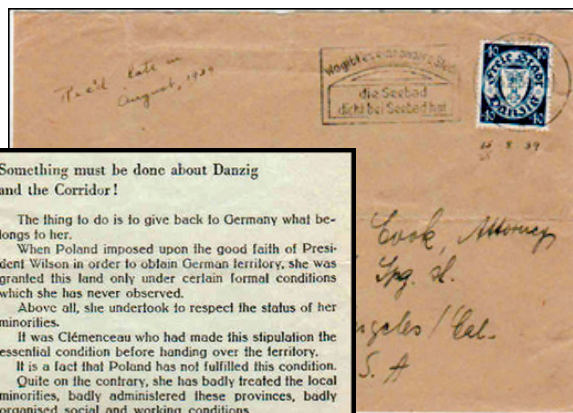 Rec'd late in
August, 1939
Wo gibt es eine andere Stadt
die Seebad
dicht bei Seebad hat
40 40
Freie Stadt
Danzig
40 40
25 8 39
Cook, Attorney
Spg. St.
ngeles / Cal.
S. A
Something must be done about Danzig
and the Corridor!
The thing to do is to give back to Germany what be-
longs to her.
When Poland imposed upon the good faith of Presi-
dent Wilson in order to obtain German territory, she was
granted this land only under certain formal conditions
which she has never observed.
Above all, she undertook to respect the status of her
minorities.
It was Clémenceau who had made this stipulation the
essential condition before handing over the territory.
It is a fact that Poland has not fulfilled this condition.
Quite on the contrary, she has badly treated the local
minorities, badly administered these provinces, badly
organised social and working conditions